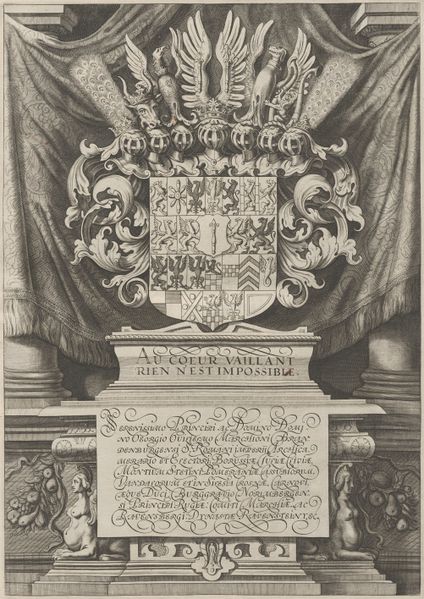 AU COEUR VAILLANT
RIEN N'EST IMPOSSIBLE.
SERENISSIMO PRINCIPI AC DOMINO DOMI
NO GEORGIO GVILIELMO MARCHIONI BRAN
DENBURGENSI S. ROMANI IMPERII ARCHICA
MERARIO ET ELECTORI BORUSSIÆ CLIVIÆ
MONTIUM STETINI POMERANIÆ CASSUBIORUM
VANDALORUM ET IN SILESIA CROSNÆ CARNOVI
ÆQUE DUCI BURGGRAVIO NORIMBERGEN
SI PRINCIPI RUGIÆ COMITI MARCHIÆ AC
RAVENSBERGI DYNASTÆ RAVENSTEINI, &C.